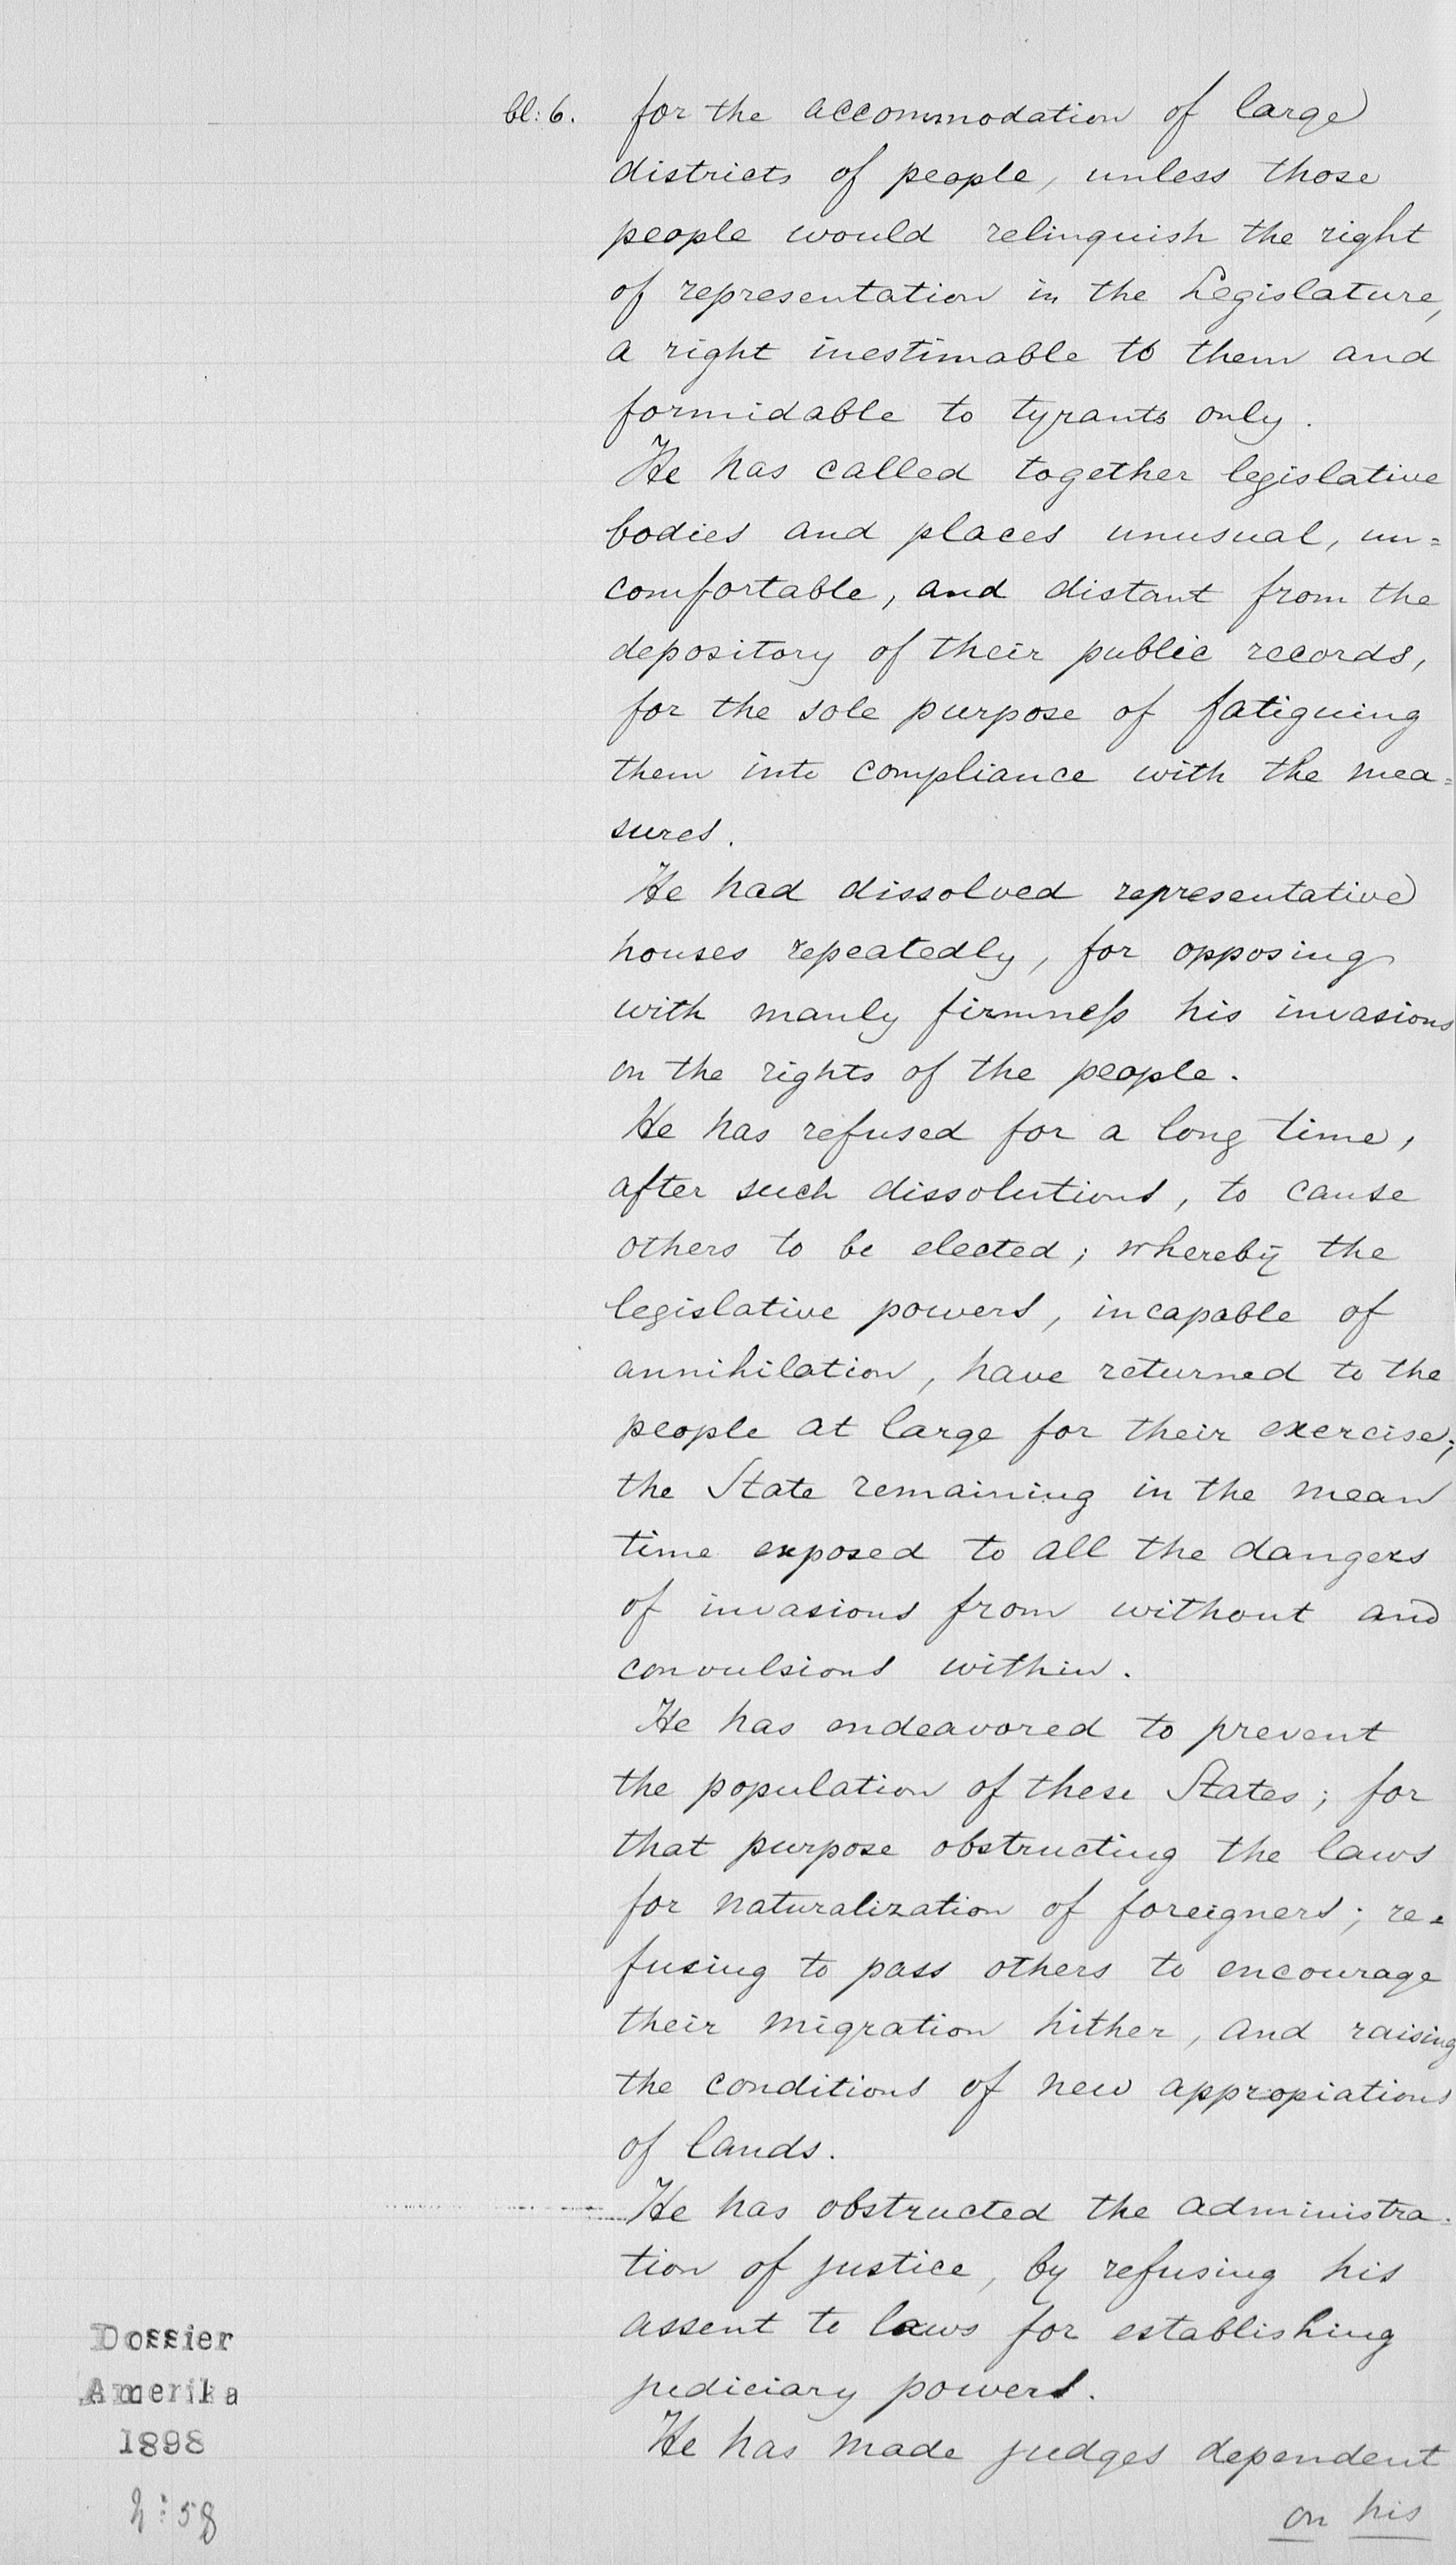 bl: 6. for the accommodation of large
districts of people, unless those
people would relinquish the right
of representation in the Legislature,
a right inestimable to them and
formidable to tyrants only.
He has called together legislative
bodies and places unusual, un=
comfortable, and distant from the
depository of their public records,
for the sole purpose of fatiguing
them into compliance with the mea=
sures.
He had dissolved representative
houses repeatedly, for opposing
with manly firmness his invasions
on the rights of the people.
He has refused for a long time,
after such dissolutions, to cause
others to be elected; whereby the
legislative powers, incapable of
annihilation, have returned to the
people at large for their exercise;
the State remaining in the mean
time exposed to all the dangers
of invasions from without and
convulsions within.
He has endeavored to prevent
the population of these States; for
that purpose obstructing the laws
for naturalization of foreigners; re=
fusing to pass others to encourage
their migration hither, and raising
the conditions of new appropiations
of lands.
He has obstructed the administra=
tion of justice, by refusing his
assent to laws for establishing
judiciary powers.
He has made judges dependent
on his
Dossier
Amerika
1898
2:58